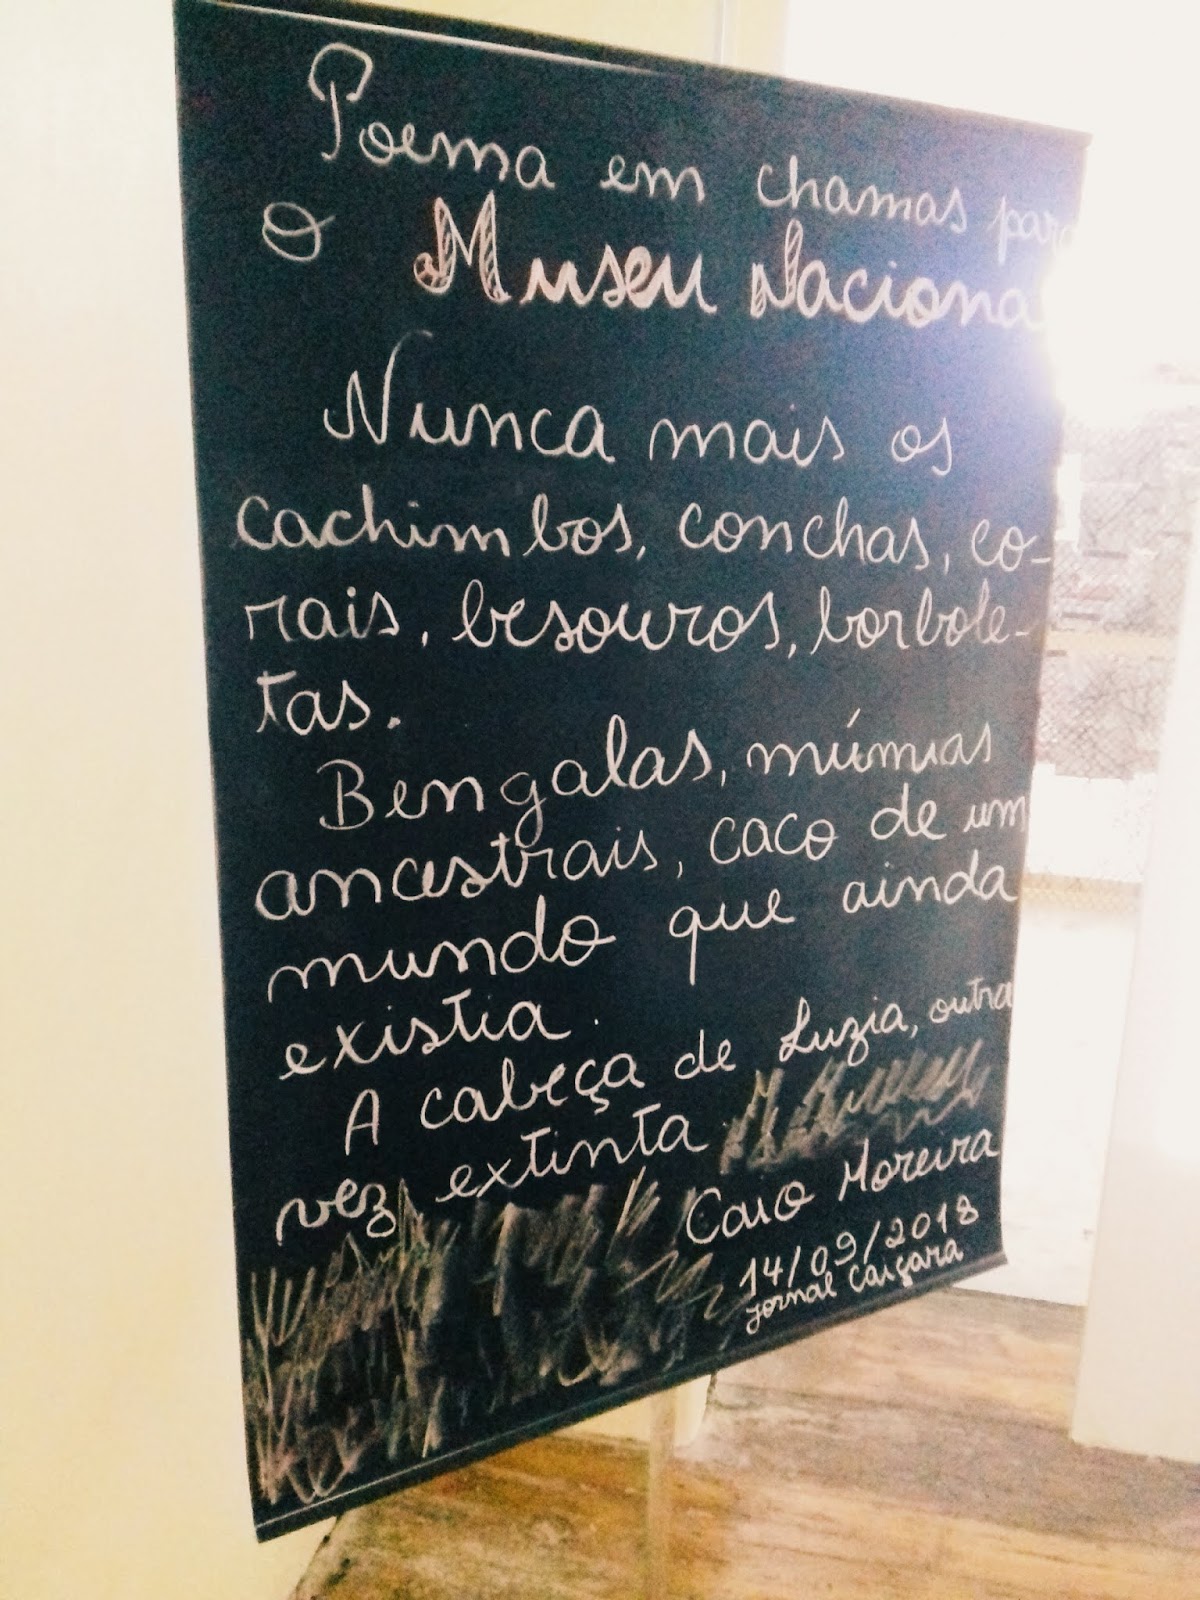 Poema em chamas para
o Museu Nacional
Nunca mais os
cachimbos, conchas, co-
rais, besouros, borbole-
tas.
Bengalas, múmias
ancestrais, caco de um
mundo que ainda
existia.
A cabeça de Luzia, outra
vez extinta.
Caio Moreira
14/09/2018
Jornal Caiçara